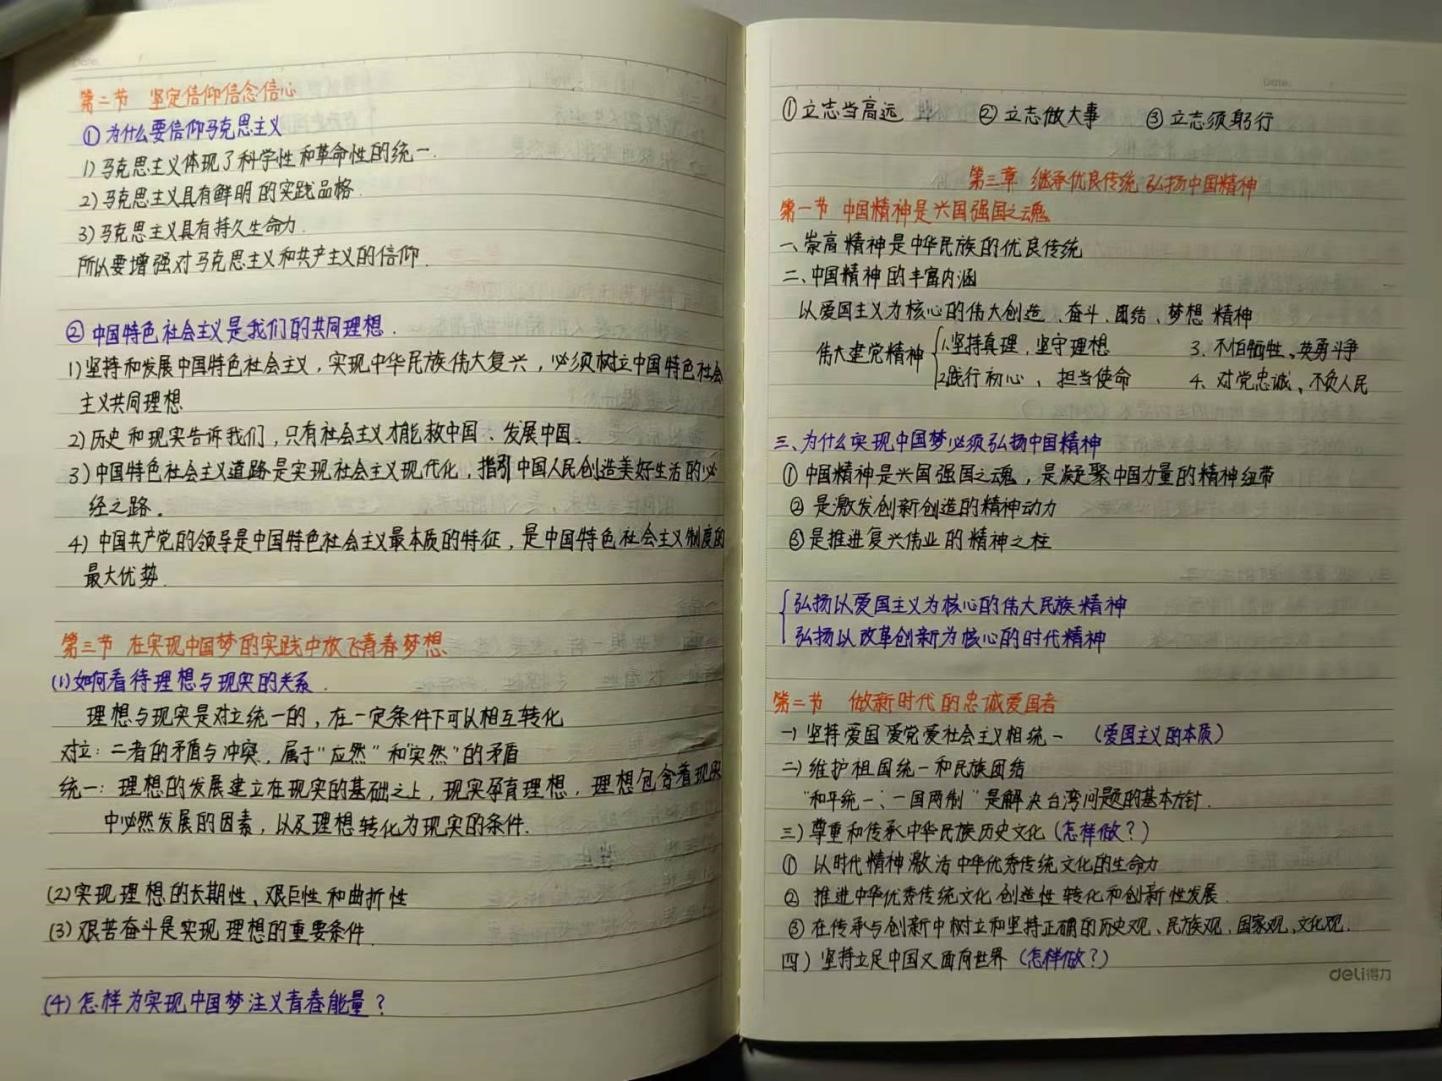 第二节 坚定信仰信念信心
① 为什么要信仰马克思主义
1) 马克思主义体现了科学性和革命性的统一.
2) 马克思主义具有鲜明的实践品格.
3) 马克思主义具有持久生命力.
所以要增强对马克思主义和共产主义的信仰.
② 中国特色社会主义是我们的共同理想.
1) 坚持和发展中国特色社会主义,实现中华民族伟大复兴,必须树立中国特色社会
主义共同理想
2) 历史和现实告诉我们,只有社会主义才能救中国、发展中国。
3) 中国特色社会主义道路是实现社会主义现代化,指引中国人民创造美好生活的必
经之路。
4) 中国共产党的领导是中国特色社会主义最本质的特征,是中国特色社会主义制度的
最大优势.
第三节 在实现中国梦的实践中放飞青春梦想
(1) 如何看待理想与现实的关系.
理想与现实是对立统一的,在一定条件下可以相互转化
对立:二者的矛盾与冲突,属于"应然"和"实然"的矛盾
统一:理想的发展建立在现实的基础之上,现实孕育理想,理想包含着现实
中必然发展的因素,以及理想转化为现实的条件.
(2) 实现理想的长期性、艰巨性和曲折性
(3) 艰苦奋斗是实现理想的重要条件
(4) 怎样为实现中国梦注义青春能量?
Date:
①立志当高远 ②立志做大事 ③立志须躬行
第三章 继承优良传统 弘扬中国精神
第一节 中国精神是兴国强国之魂
一、崇高精神是中华民族的优良传统
二、中国精神的丰富内涵
以爱国主义为核心的伟大创造、奋斗、团结、梦想精神
伟大建党精神 1.坚持真理,坚守理想 3. 不怕牺牲、英勇斗争
2践行初心,担当使命 4. 对党忠诚、不负人民
三、为什么实现中国梦必须弘扬中国精神
① 中国精神是兴国强国之魂,是凝聚中国力量的精神纽带
② 是激发创新创造的精神动力
③ 是推进复兴伟业的精神之柱
弘扬以爱国主义为核心的伟大民族精神
弘扬以改革创新为核心的时代精神
第二节 做新时代的忠诚爱国者
一) 坚持爱国爱党爱社会主义相统一 (爱国主义的本质)
二) 维护祖国统一和民族团结
"和平统一、一国两制"是解决台湾问题的基本方针.
三) 尊重和传承中华民族历史文化 (怎样做?)
① 以时代精神激活中华优秀传统文化的生命力
② 推进中华优秀传统文化创造性转化和创新性发展.
③ 在传承与创新中树立和坚持正确的历史观、民族观、国家观、文化观.
四) 坚持立足中国又面向世界 (怎样做?)
deli得力